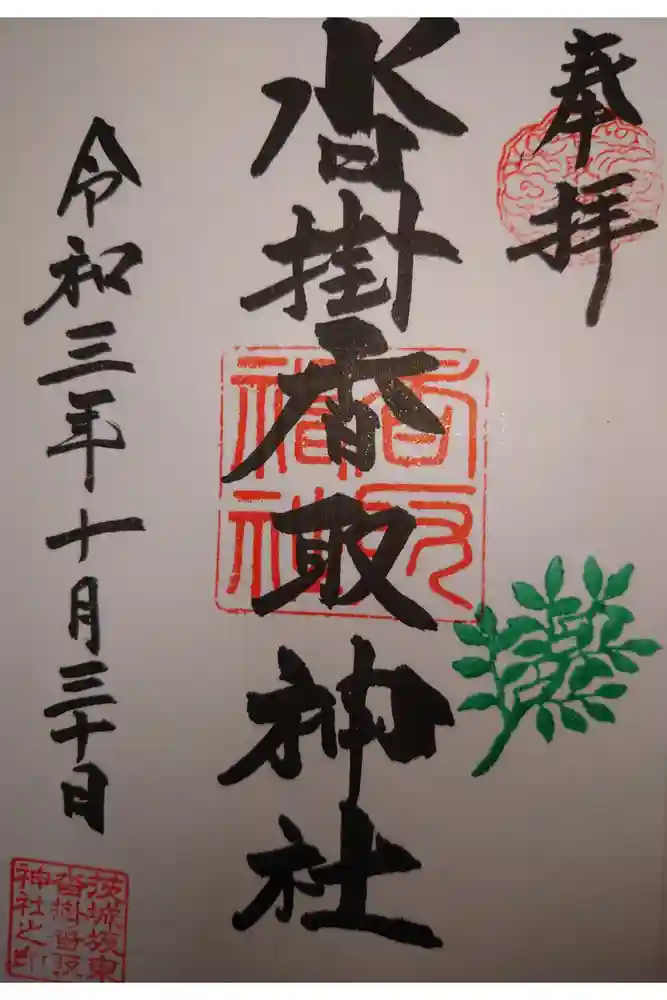 奉拝
沓掛香取神社
香取神社
令和三年十月三十日
茨城坂東
沓掛香取
神社之印